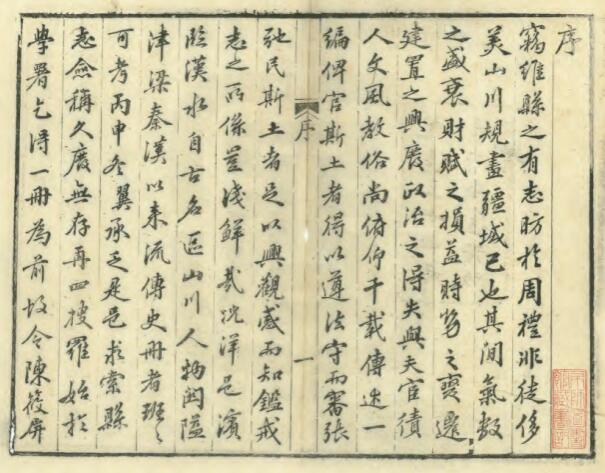 序
竊維縣之有志昉於周禮非徒侈
美山川規畫疆域已也其間氣数
之盛衰財賦之損益時势之變遷
建置之興廢政治之得失與夫官績
人文風教俗尚俯仰千載傳述一
編俾官斯土者得以遵法守而審張
序
一
弛民斯土者足以興觀感而知鑑戒
志之所係豈淺鮮哉况洋邑濱
臨漢水自古名區山川人物闗隘
津梁秦漢以来流傳史冊者班〻
可考丙申冬翼承乏是邑求索縣
志僉稱久廢無存再四搜羅始於
學署乞得一冊為前故令陳筱屏